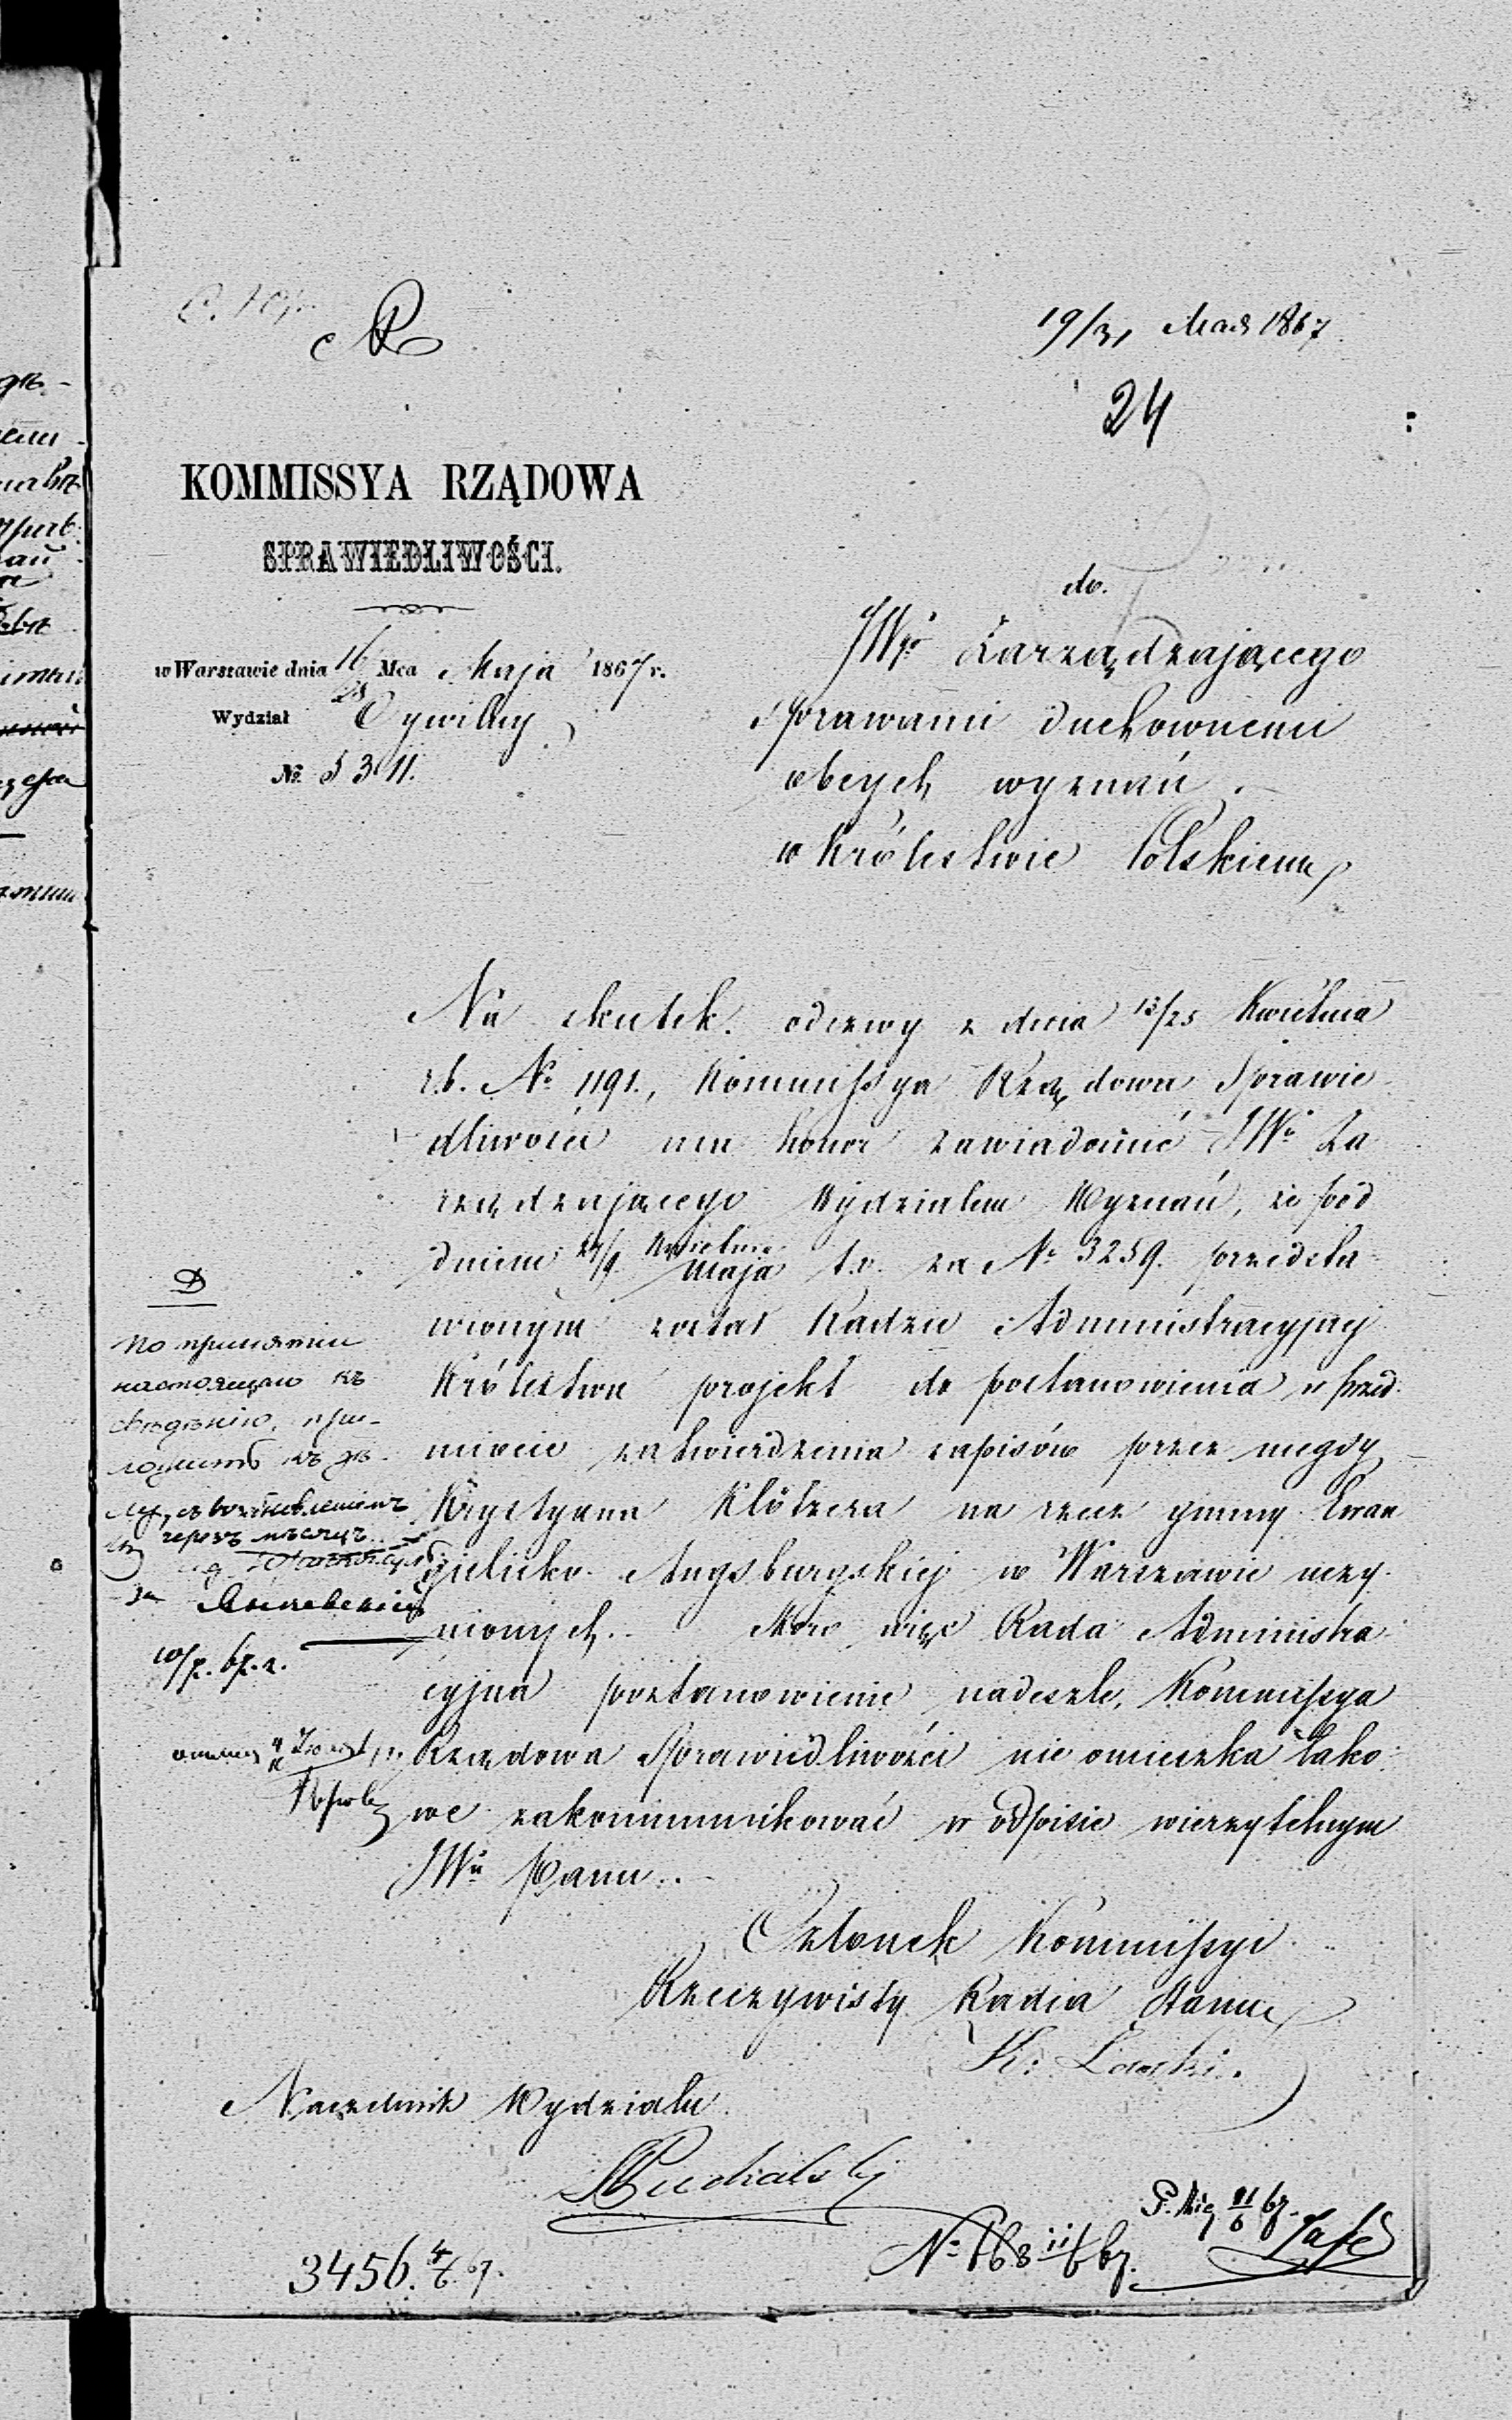 19/31 Мая 1867
24
KOMMISSYA RZĄDOWA
SPRAWIEDLIWOŚCI.
w Warszawie dnia 16/28 Mca Maja 1867 r.
Wydział Cywilny
№ 5311.
do.
JWgo Zarządzającego
sprawami duchownemi
obcych wyznań
w Królestwie Polskiem
Na skutek odezwy z dnia 13/25 Kwietnia
r.b. No 1191., Kommissya Rządowa Sprawie
dliwości ma honor zawiadomić JWo Za
rządzającego Wydziałem Wyznań, że pod
dniem 27/9 Kwietnia/Maja t.r. za No 3259. przedsta
wionym został Radzie Administracyjnej
Królestwa projekt do postanowienia w przed
miocie zatwierdzenia zapisów przez niegdy
Krystyana Klötzera na rzecz gminy Ewan
gielicko Augsburgskiej w Warszawie uczy
nionych. Skoro więc Rada Administra
cyjna postanowienie nadeszle, Kommissya
Rządowa Sprawiedliwości nie omieszka tako
we zakommunikować w odpisie wierzytelnym
JWu Panu.
Członek Kommissyi
Rzeczywisty Radca Stanu
Naczelnik Wydziału
По принятии
настоящаго къ
свѣдѣнію, прі-
ложить къ дѣ-
лу, съ возобновленіемъ
черезъ мѣсяцъ
3456. 4/6 67.